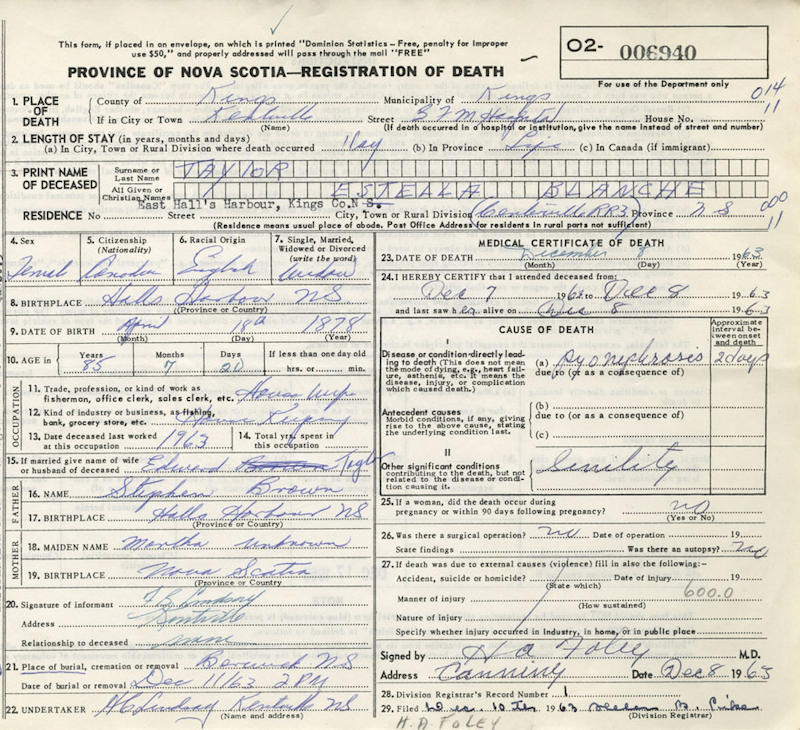 This form, if placed in an envelope, on which is printed "Dominion Statistics - Free, penalty for improper
use $50," and properly addressed will pass through the mail "FREE"
PROVINCE OF NOVA SCOTIA—REGISTRATION OF DEATH
O2- 006940
For use of the Department only
014
11
1. PLACE OF DEATH
County of Kings Municipality of Kings
If in City or Town Kentville Street B F M Hospital House No.
(Name) (If death occurred in a hospital or institution, give the name instead of street and number)
2. LENGTH OF STAY (in years, months and days)
(a) In City, Town or Rural Division where death occurred 1 Day (b) In Province Life (c) In Canada (if immigrant)
3. PRINT NAME OF DECEASED
Surname or Last Name TAYLOR
All Given or Christian Names ESTELLA BLANCHE
East Hall's Harbour, Kings Co. N S.
000
11
RESIDENCE No Street City, Town or Rural Division (Centreville RR3) Province N S
(Residence means usual place of abode. Post Office Address for residents in rural parts not sufficient)
4. Sex
Female
5. Citizenship (Nationality)
Canadian
6. Racial Origin
English
7. Single, Married, Widowed or Divorced (write the word)
Widow
8. BIRTHPLACE Halls Harbour NS
(Province or Country)
9. DATE OF BIRTH April 18th 1878
(Month) (Day) (Year)
10. AGE in Years Months Days If less than one day old
85 7 20 hrs. or min.
OCCUPATION
11. Trade, profession, or kind of work as fisherman, office clerk, sales clerk, etc. House wife
12. Kind of industry or business, as fishing, bank, grocery store, etc. House Keeping
13. Date deceased last worked at this occupation 1963
14. Total yrs. spent in this occupation
15. If married give name of wife or husband of deceased Edward Taylor
FATHER
16. NAME Stephen Brown
17. BIRTHPLACE Halls Harbour NS
(Province or Country)
MOTHER
18. MAIDEN NAME Martha unknown
19. BIRTHPLACE Nova Scotia
(Province or Country)
20. Signature of informant Lindsay
Address Kentville
Relationship to deceased none
21. Place of burial, cremation or removal Berwick NS
Date of burial or removal Dec 11/63 2 PM
22. UNDERTAKER Lindsay Kentville NS
(Name and address)
MEDICAL CERTIFICATE OF DEATH
23. DATE OF DEATH December 8 1963
(Month) (Day) (Year)
24. I HEREBY CERTIFY that I attended deceased from:
Dec 7 1963 to Dec 8 1963
and last saw her alive on Dec 8 1963
CAUSE OF DEATH
Approximate interval between onset and death
I
Disease or condition directly leading to death (This does not mean the mode of dying, e.g., heart failure, asthenia, etc. It means the disease, injury, or complication which caused death.)
(a) Pyonephrosis 2 days
due to (or as a consequence of)
Antecedent causes
Morbid conditions, if any, giving rise to the above cause, stating the underlying condition last.
(b)
due to (or as a consequence of)
(c)
II
Other significant conditions
contributing to the death, but not related to the disease or condition causing it.
Senility
25. If a woman, did the death occur during pregnancy or within 90 days following pregnancy? no
(Yes or No)
26. Was there a surgical operation? no Date of operation 19
State findings Was there an autopsy? no
27. If death was due to external causes (violence) fill in also the following:-
Accident, suicide or homicide? Date of injury 19
(State which)
600.0
Manner of injury
(How sustained)
Nature of injury
Specify whether injury occurred in industry, in home, or in public place
Signed by H A Foley M.D.
Address Canning Date Dec 8 1963
28. Division Registrar's Record Number 1
29. Filed Dec. 10th 1963
(Division Registrar)
H.A. FOLEY